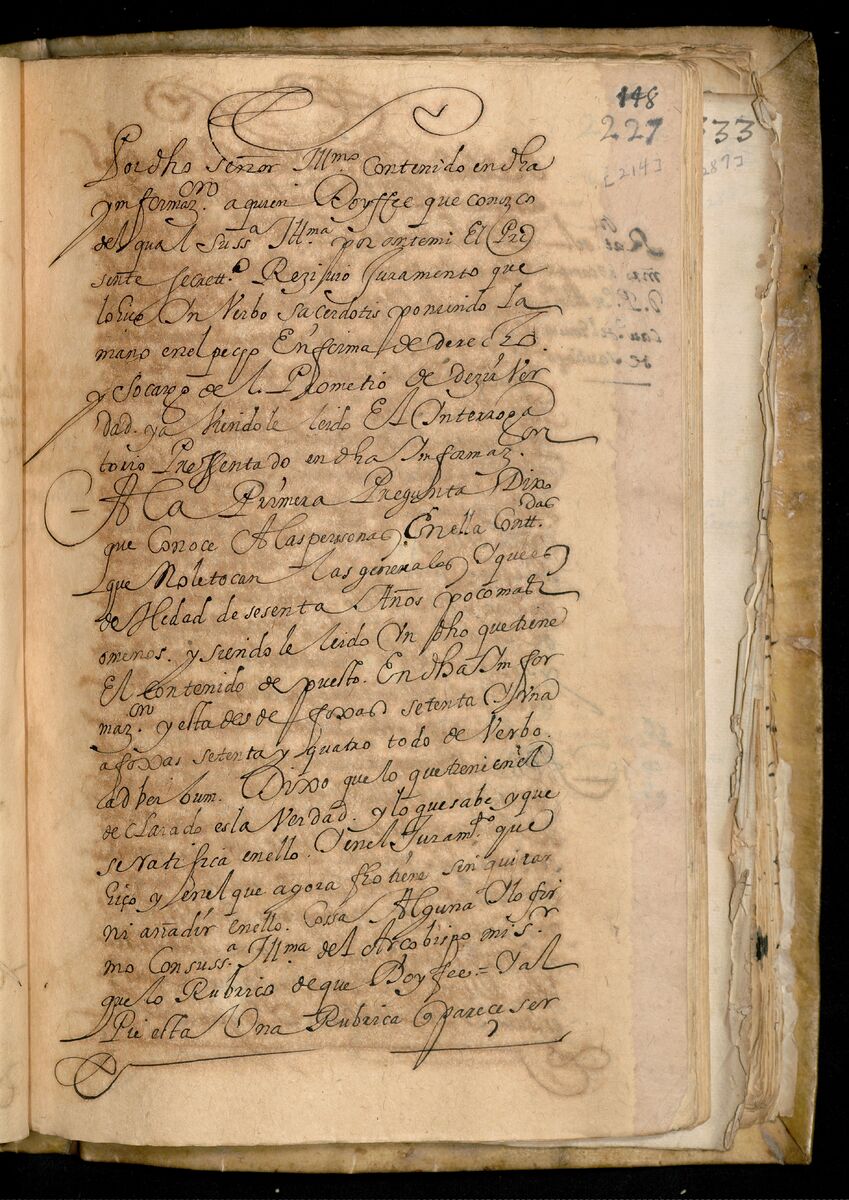 118
227
333
[214]
289]
Por dho señor Illmo contenido en dha
ynformazon. a quien Doy ffee que conozco
del qual su ssa Illma por ante mi El Pre
sente secrettro Rezivio Juramento que
lo hiço Yn Verbo sacerdotis poniendo La
mano en el pecho En forma de derecho.
y so cargo de l. Prometio de dezir Ver
dad. ya siendole leido El Interroga
torio Pressentado en dha Informazon
A La Primera Pregunta Dixo
que Conoce A las personas En ella Conttdas
que No le tocan las generales Y que es
de Hedad de sesenta Años poco mas
o menos. y siendole leido Un dho que tiene
El contenido de puesto. En dha Infor
mazon. y esta desde foxas setenta Y una
a foxas setenta y quatro todo de Verbo.
ad berbum. Dixo que lo que tiene en el
declarado es la Verdad. y lo que sabe y que
se ratifica en ello. Y en el Juramto que
hiço y en el que agora fho tiene sin quitar
ni añadir en ello. Cossa Alguna Y lo fir
mo Con su ssa Illma del Arcobispo mi sr
que lo Rubrico de que Doy fee = Y al
Pie esta Una Rubrica q parece ser